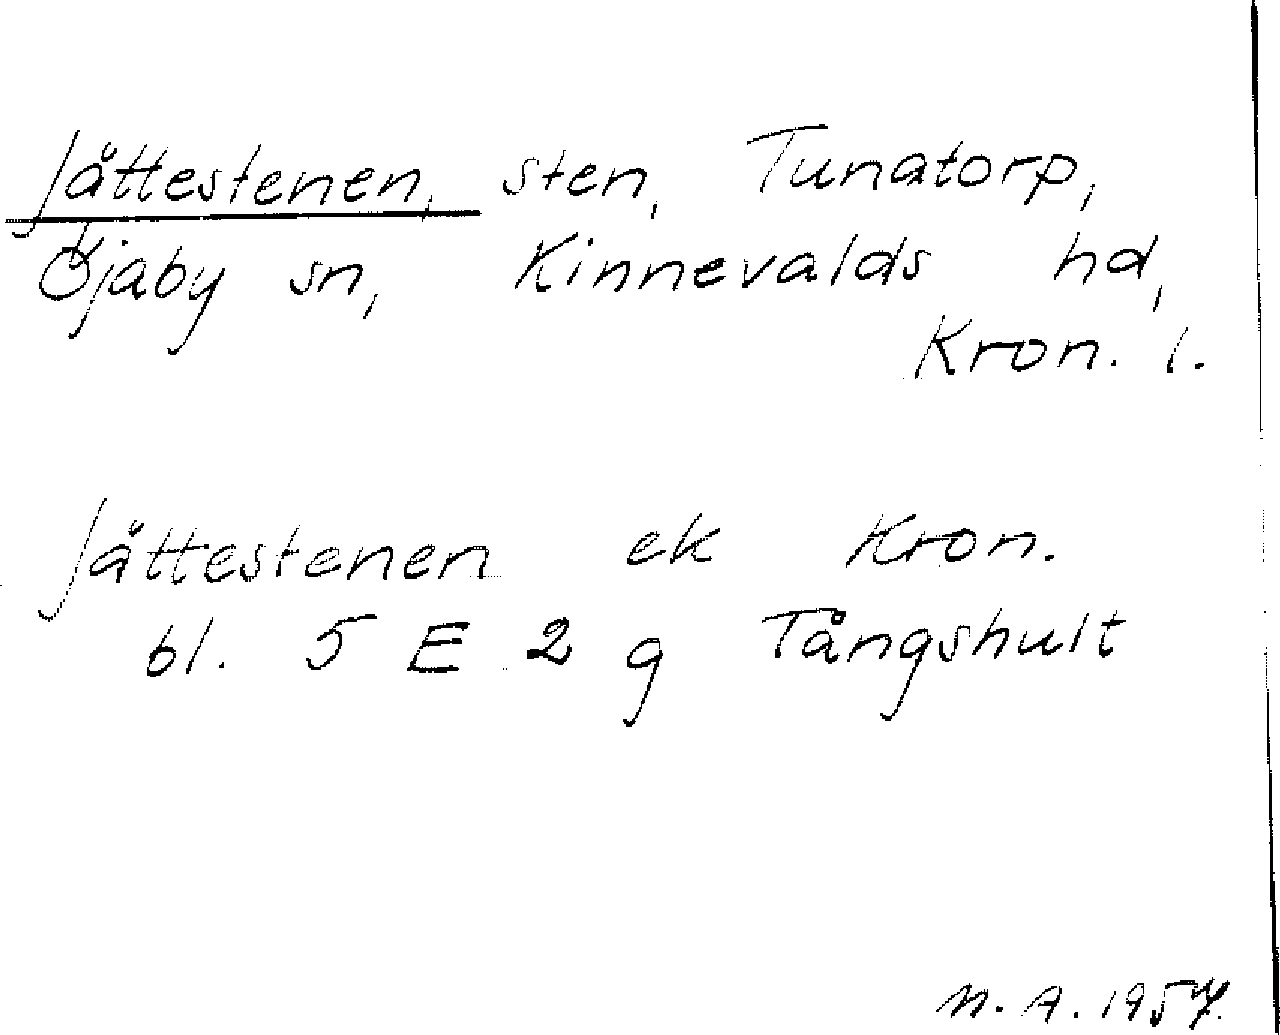 Jåttestenen, sten, Tunatorp,
Öjaby sn, Kinnevalds hd,
Kron. l.
Jåttestenen ek Kron.
bl. 5 E 2 g Tångshult
N. A. 1957.